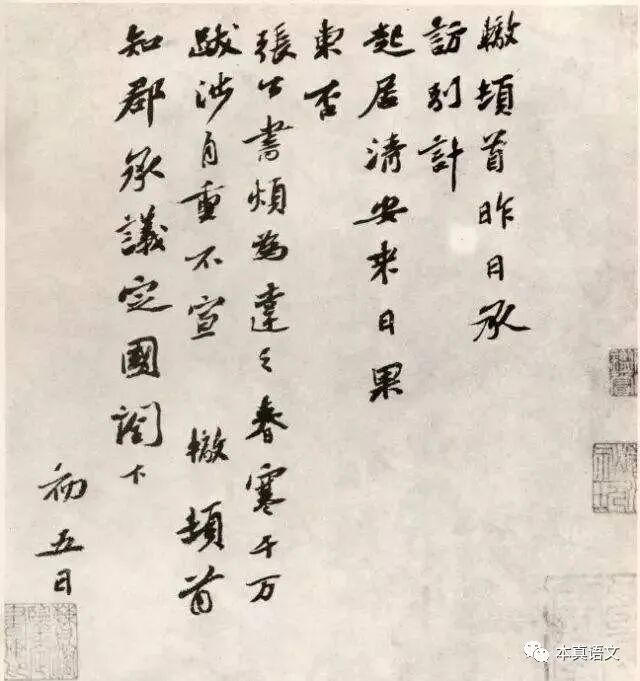 轍頓首昨日承
訪別計
起居清安來日果
東否
張公書煩為達之春寒千万
跋涉自重不宣 轍頓首
知郡承議定國閤下
初五日
本真语文